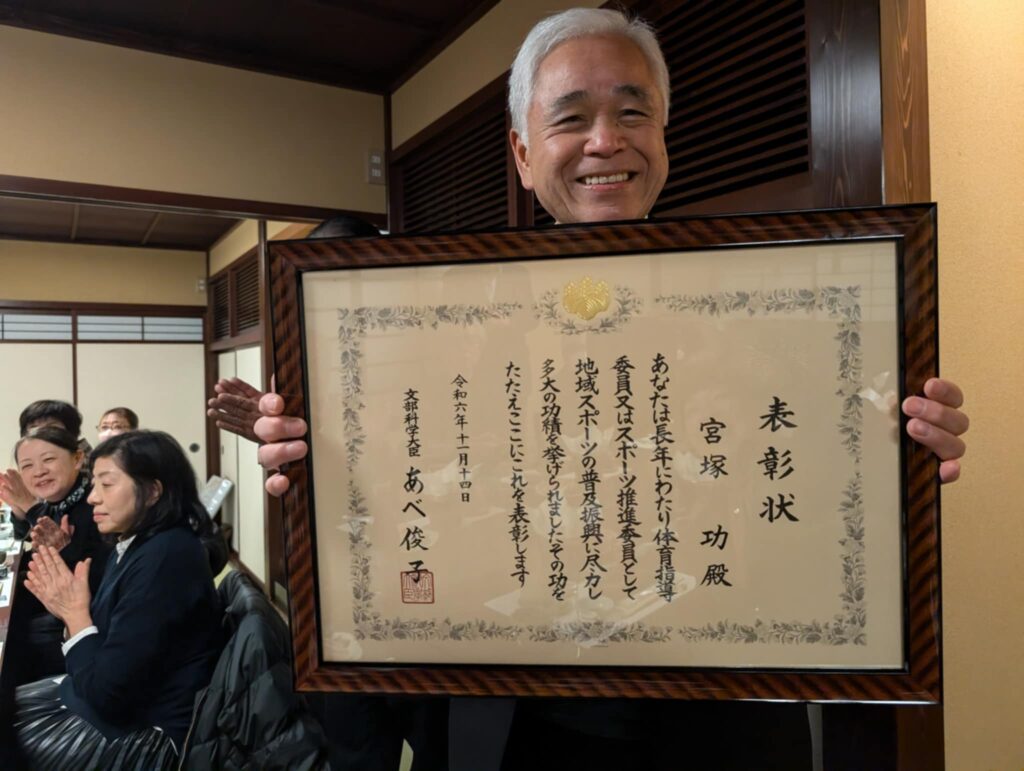 表彰状
宮塚 功殿
あなたは長年にわたり体育指導
委員又はスポーツ推進委員として
地域スポーツの普及振興に尽力し
多大の功績を挙げられましたその功を
たたえここにこれを表彰します
令和六年十一月十四日
文部科学大臣 あべ俊子